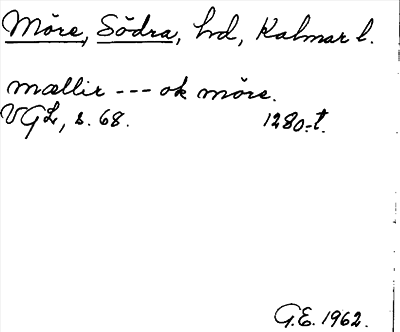 Möre, Södra, hd, Kalmar l.
mællir --- ok möre.
VGL, s. 68. 1280-t.
G.E. 1962.